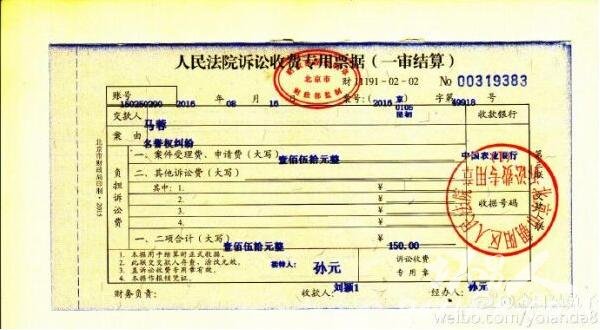 人民法院诉讼收费专用票据（一审结算）
北京市
财政部监制
财J1191-02-02 No 00319383
账号 150250290 2016 年 08 月 16 日 案号：（2016 京0105民初）字第49918 号
交款人 马蓉 收款银行
案由 名誉权纠纷
一、案件受理费、申请费（大写）壹佰伍拾元整 中国农业银行
负担诉讼费
二、其他诉讼费（大写） ¥
其中：1. ¥
2. ¥
3. ¥
4. ¥
收据号码
一、二项合计（大写）壹佰伍拾元整 ¥ 150.00
1、本据用于结算时正式收据。
2、此联交交款人存查，涂改无效。
3、盖诉讼收费专用章有效。
4、本据作报销凭证。
核转人： 孙元
诉讼收费
专用章
财务负责： 收款人： 刘颖1 经办人： 孙元
北京市财政局印制·2015
北京市朝阳区人民法院
诉讼费专用章
weibo.com/yolanda8